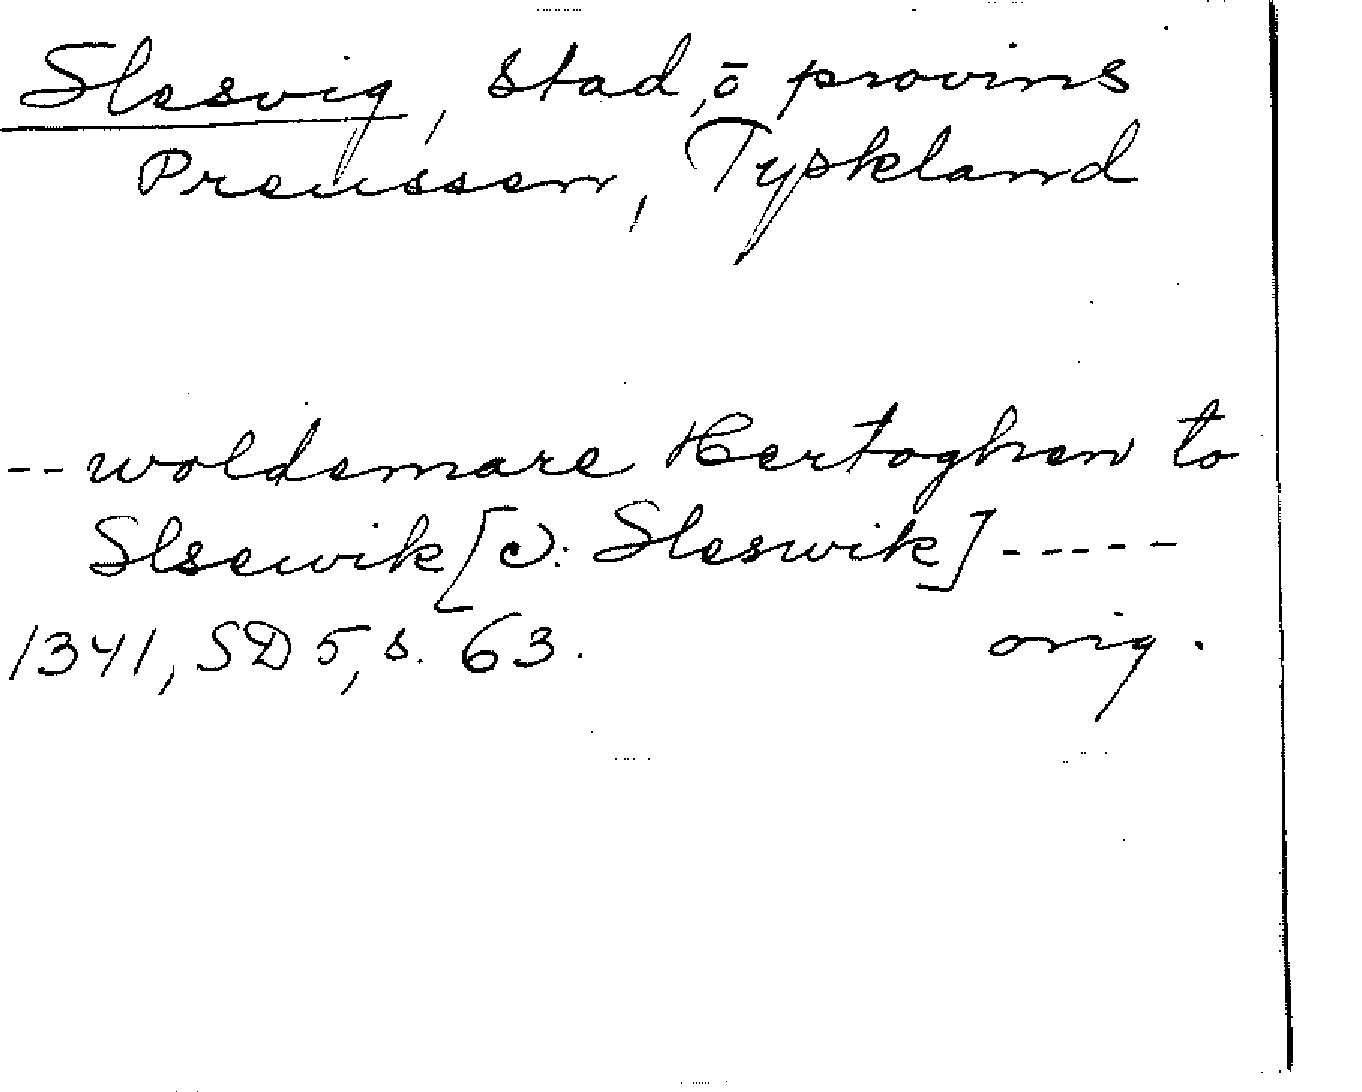 Slesvig, stad, ō provins
Preussen, Tyskland
-- woldemare Hertoghen to
Slsewik [ɔ: Sleswik] -----
1341, SD 5, s. 63. orig.